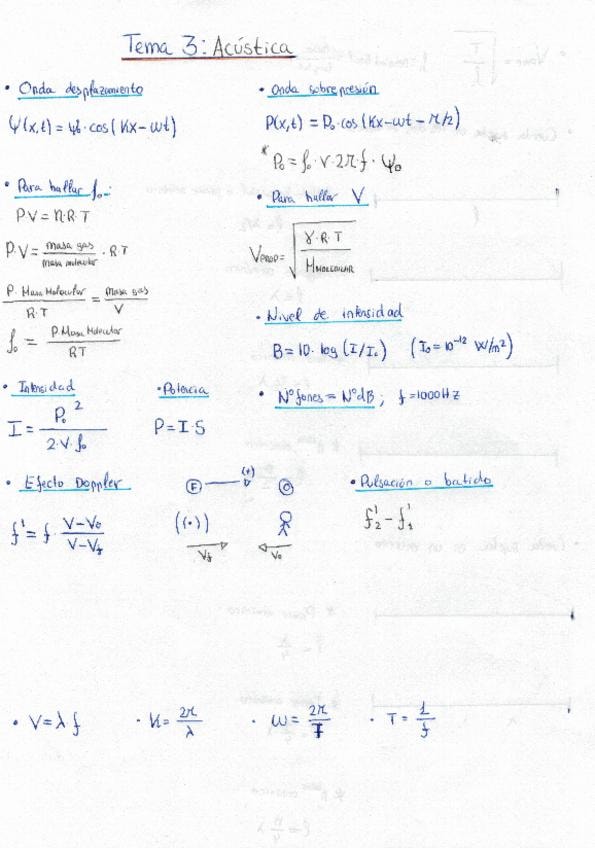 Tema 3: Acústica
• Onda desplazamiento
Ψ(x,t) = Ψ₀·cos(Kx-ωt)
• Onda sobrepresión
P(x,t) = P₀·cos(Kx-ωt-π/2)
* P₀ = ρ₀·v·2π·f·Ψ₀
• Para hallar ρ₀:
P·V = n·R·T
P·V = masa gas / masa molecular · R·T
P. Masa Molecular / R·T = masa gas / V
ρ₀ = P. Masa Molecular / RT
• Para hallar V
VPROP = √(γ·R·T / MMOLECULAR)
• Nivel de intensidad
B = 10·log(I/I₀) (I₀ = 10⁻¹² W/m²)
• Nº fones = Nº dB ; f = 1000 Hz
• Intensidad
I = P₀² / 2·V·ρ₀
• Potencia
P = I·S
• Efecto Doppler
f' = f · V-V₀ / V-Vf
F (+) O
((•))
Vf V₀
• Pulsación o batido
f'₂ - f'₁
• V = λf
• K = 2π/λ
• ω = 2π/T
• T = 1/f